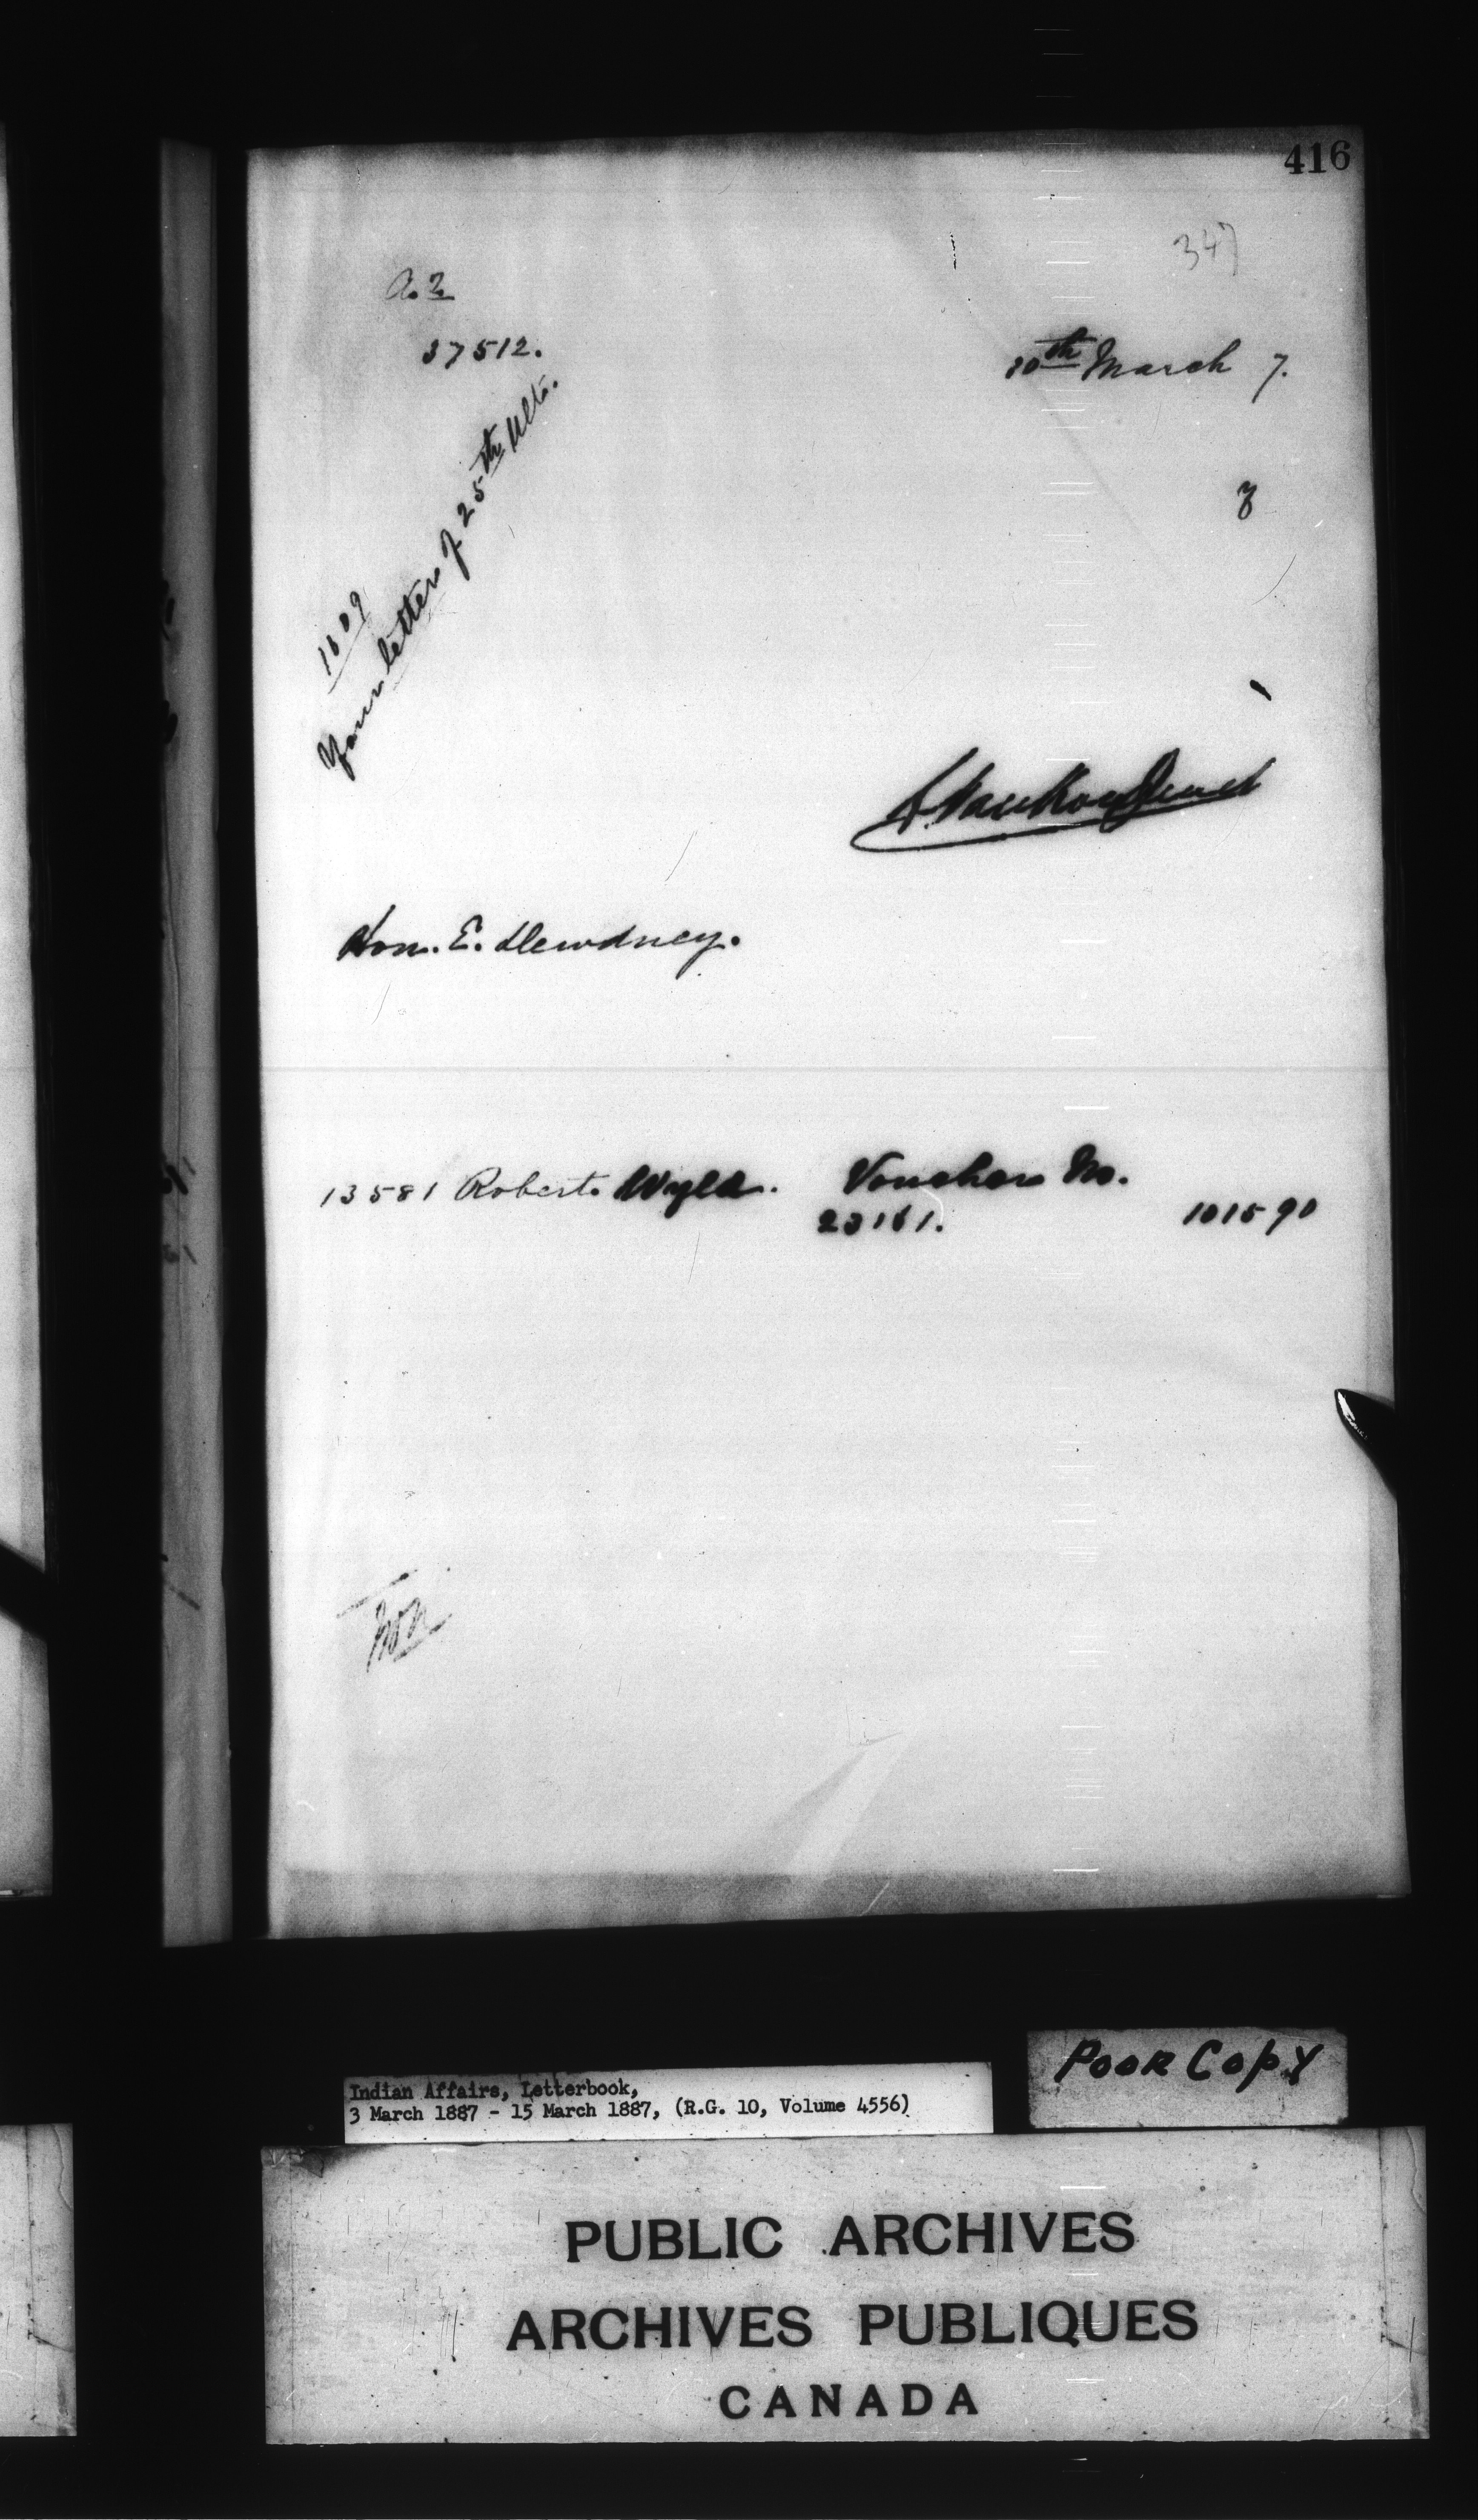 416
347
a.2
37512.
10th March 7.
3
1609
Your letter of 25th Ulto.
L. Vankoughnet
Hon. E. Dewdney.
13581 Robert Wyld. Voucher No.
23161. 1015 90
Hon
Indian Affairs, Letterbook,
3 March 1887 - 15 March 1887, (R.G. 10, Volume 4556)
POOR COPY
PUBLIC ARCHIVES
ARCHIVES PUBLIQUES
CANADA